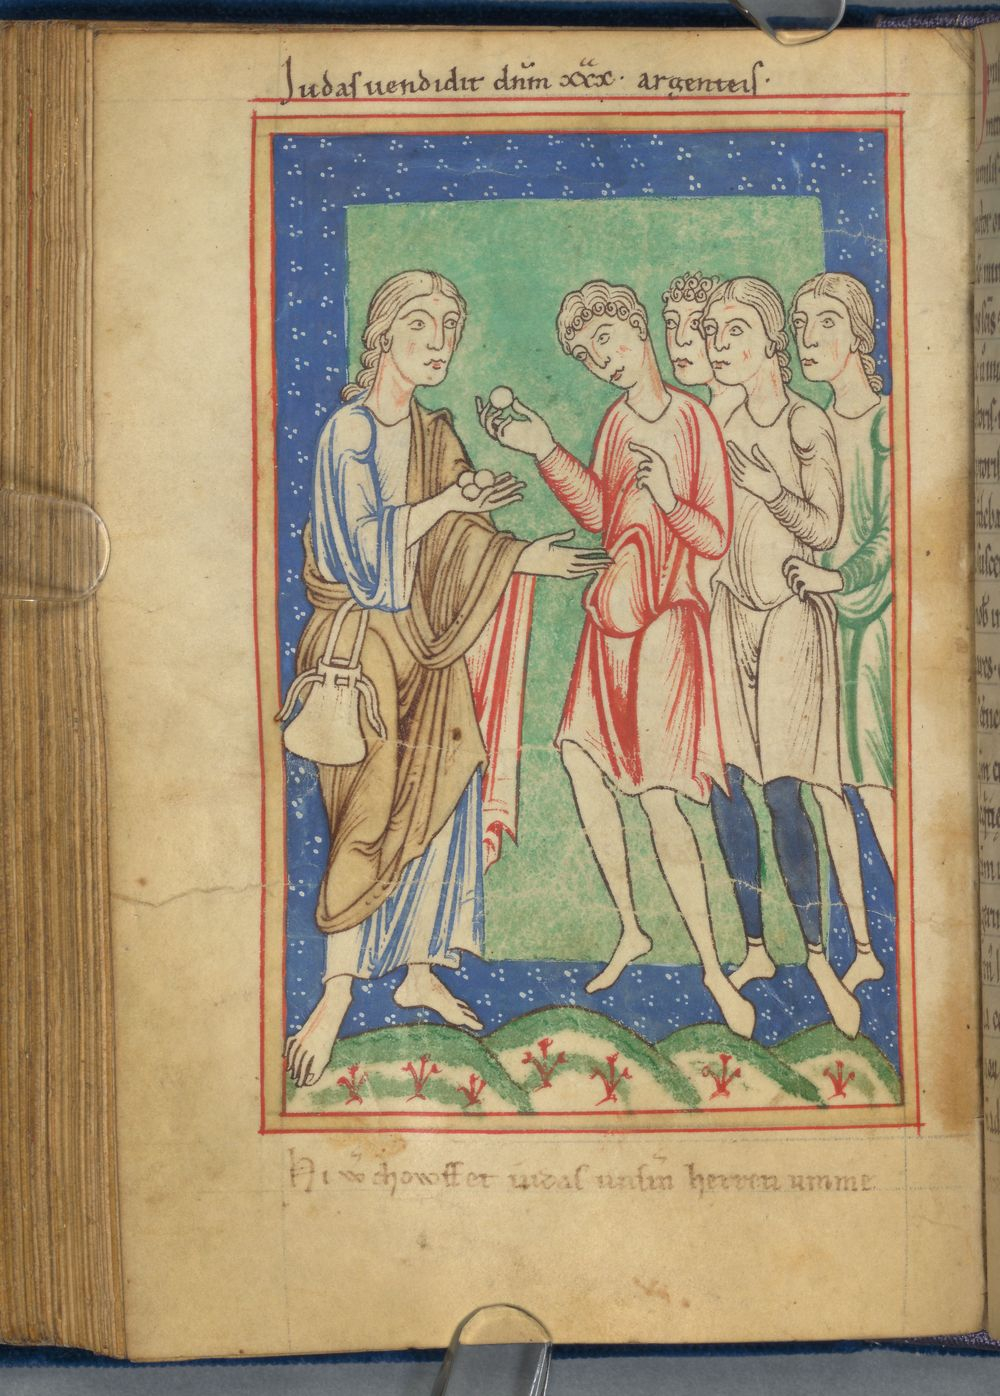 Iudas uendidit dñm xxx · argenteis ·
Hi w̄chowffet iudas unsin̄ herren umme